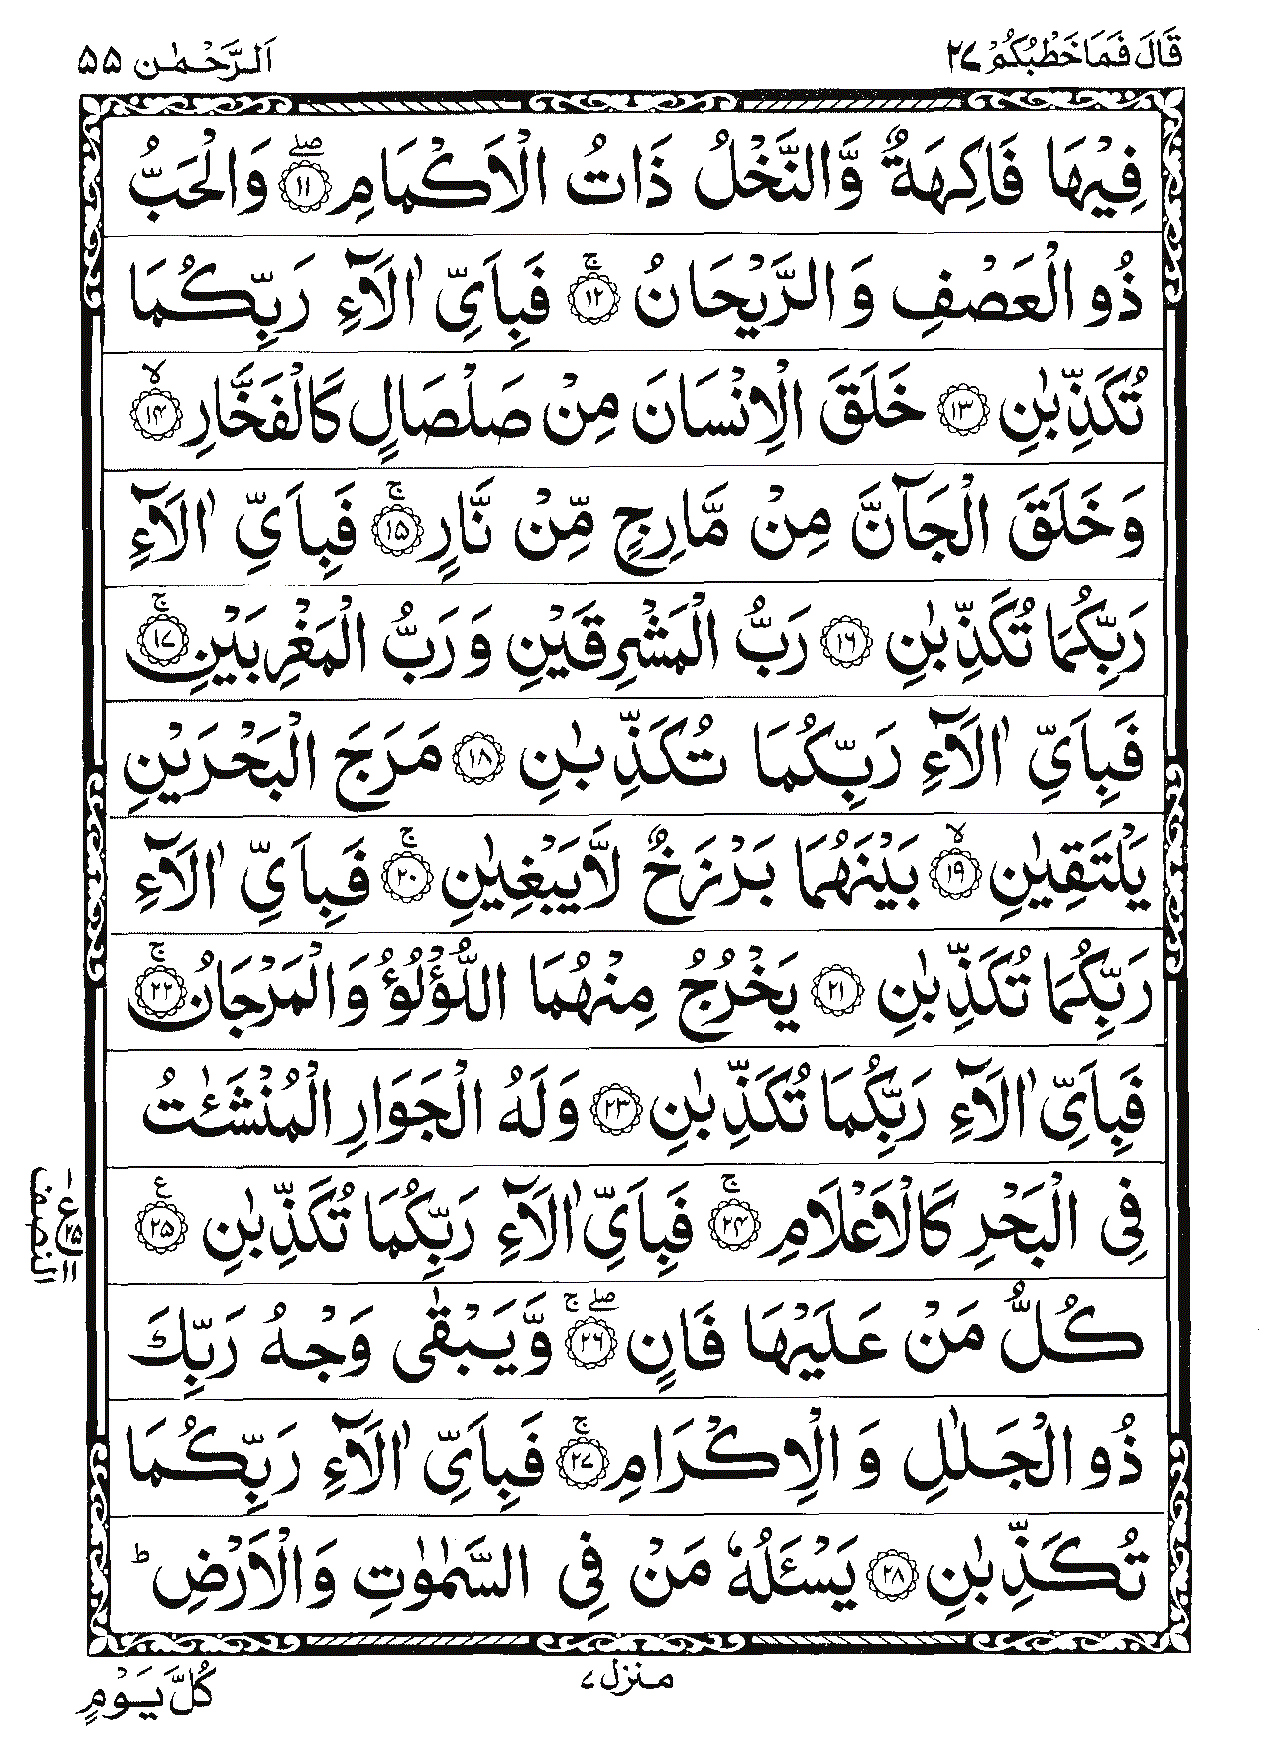 قَالَ فَمَا خَطْبُكُمْ ٢٧
اَلرَّحْمٰن ٥٥
فِيْهَا فَاكِهَةٌ وَّالنَّخْلُ ذَاتُ الْاَكْمَامِ ۖ﴿١١﴾ وَالْحَبُّ
ذُو الْعَصْفِ وَ الرَّيْحَانُ ۚ﴿١٢﴾ فَبِاَىِّ اٰلَآءِ رَبِّكُمَا
تُكَذِّبٰنِ ﴿١٣﴾ خَلَقَ الْاِنْسَانَ مِنْ صَلْصَالٍ كَالْفَخَّارِ ۙ﴿١٤﴾
وَ خَلَقَ الْجَآنَّ مِنْ مَّارِجٍ مِّنْ نَّارٍ ۚ﴿١٥﴾ فَبِاَىِّ اٰلَآءِ
رَبِّكُمَا تُكَذِّبٰنِ ﴿١٦﴾ رَبُّ الْمَشْرِقَيْنِ وَ رَبُّ الْمَغْرِبَيْنِ ۚ﴿١٧﴾
فَبِاَىِّ اٰلَآءِ رَبِّكُمَا تُكَذِّبٰنِ ﴿١٨﴾ مَرَجَ الْبَحْرَيْنِ
يَلْتَقِيٰنِ ۙ﴿١٩﴾ بَيْنَهُمَا بَرْزَخٌ لَّا يَبْغِيٰنِ ۚ﴿٢٠﴾ فَبِاَىِّ اٰلَآءِ
رَبِّكُمَا تُكَذِّبٰنِ ﴿٢١﴾ يَخْرُجُ مِنْهُمَا اللُّؤْلُؤُ وَ الْمَرْجَانُ ۚ﴿٢٢﴾
فَبِاَىِّ اٰلَآءِ رَبِّكُمَا تُكَذِّبٰنِ ﴿٢٣﴾ وَلَهُ الْجَوَارِ الْمُنْشَئٰتُ
فِى الْبَحْرِ كَالْاَعْلَامِ ۚ﴿٢٤﴾ فَبِاَىِّ اٰلَآءِ رَبِّكُمَا تُكَذِّبٰنِ ﴿٢٥﴾ ع
كُلُّ مَنْ عَلَيْهَا فَانٍ ۖۚ﴿٢٦﴾ وَّيَبْقٰى وَجْهُ رَبِّكَ
ذُو الْجَلٰلِ وَ الْاِكْرَامِ ۚ﴿٢٧﴾ فَبِاَىِّ اٰلَآءِ رَبِّكُمَا
تُكَذِّبٰنِ ﴿٢٨﴾ يَسْئَلُهٗ مَنْ فِى السَّمٰوٰتِ وَالْاَرْضِ ؕ
النصف
منزل ٧
كُلَّ يَوْمٍ